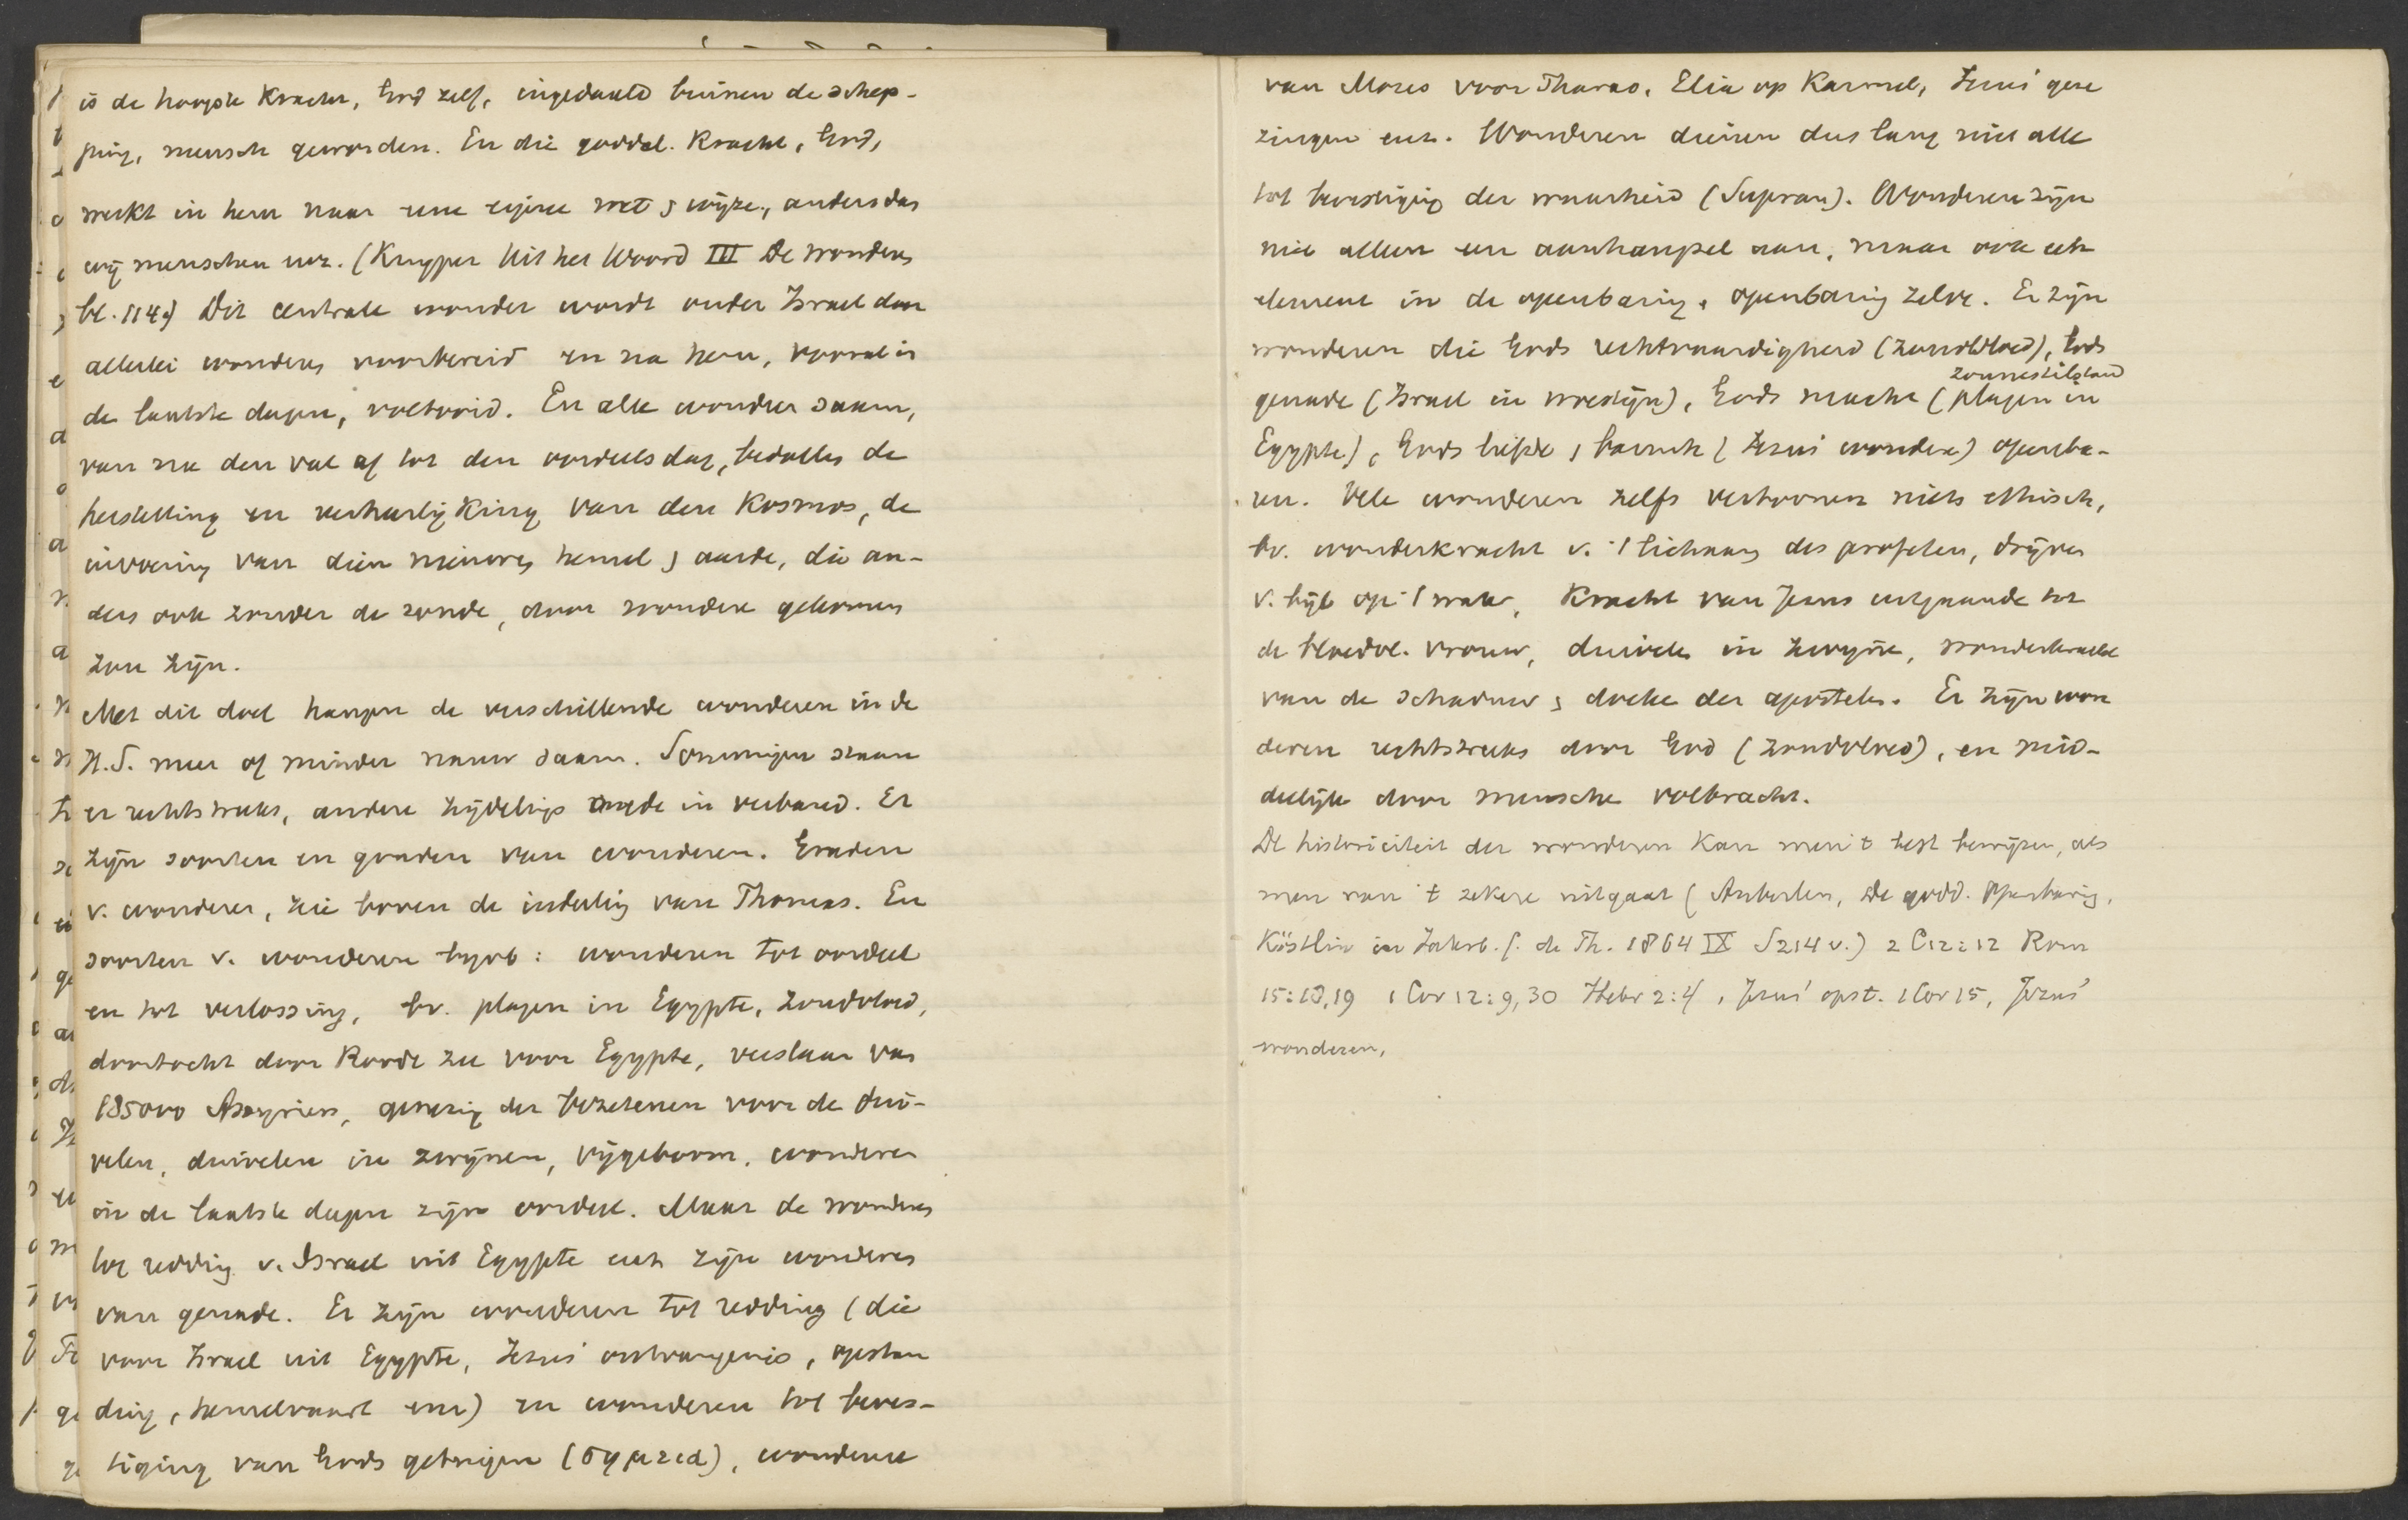 is de hoogste Kracht, God zelf, ingedaald binnen de schep-
ping, mensch geworden. En die goddel. Kracht, God,
werkt in hem naar eene eigene wet & wijze, anders dan
wij menschen enz. (Kuyper Uit het Woord III De wonderen
bl. 114.) Dit centrale wonder wordt onder Israel door
allerlei wonderen voorbereid en na hem, vooral in
de laatste dagen, voltooid. En alle wonderen saam,
van na den val af tot den oordeelsdag, bedoelen de
herstelling en verheerlijking van den Kosmos, de
invoering van dien nieuwen hemel & aarde, die an-
ders ook zonder de zonde, door wonderen gekomen
zou zijn.
Met dit doel hangen de verschillende wonderen in de
H.S. meer of minder nauw saam. Sommigen staan
er rechtstreeks, andere zijdelings mede in verband. Er
zijn soorten en graden van wonderen. Graden
v. wonderen, zie boven de indeeling van Thomas. En
soorten v. wonderen bijvb: wonderen tot oordeel
en tot verlossing, bv. plagen in Egypte, Zondvloed,
doortocht door Roode zee voor Egypte, verslaan van
185000 Assyriers, genezing der bezetenen voor de dui-
velen, duivelen in zwijnen, vijgeboom, wonderen
in de laatste dagen zijn oordeel. Maar de wonderen
tot redding v. Israel uit Egypte enz zijn wonderen
van genade. Er zijn wonderen tot redding (die
voor Israel uit Egypte, Jezus' ontvangenis, opstan
ding, hemelvaart enz) en wonderen tot beves-
tiging van Gods getuigen (σημεια), wonderen
van Mozes voor Pharao, Elia op Karmel, Jezus' gene
zingen enz. Wonderen dienen dus lang niet alle
tot bevestiging der waarheid (Supran). Wonderen zijn
niet alleen een aanhangsel aan, maar ook een
element in de openbaring, openbaring zelve. Er zijn
wonderen die Gods rechtvaardigheid (zondvloed), Gods
zonnestilstand
genade (Israel in woestijn), Gods macht (plagen in
Egypte), Gods liefde & barmh (Jezus' wonderen) openba-
ren. Vele wonderen zelfs vertoonen niets ethisch,
bv. wonderkracht v. 't lichaam des profeten, drijven
v. bijl op 't water, Kracht van Jezus uitgaande tot
de bloedvl. vrouw, duivelen in zwijnen, wonderkracht
van de schaduw & doeken der apostelen. Er zijn won
deren rechtstreeks door God (zondvloed), en mid-
dellijk door menschen volbracht.
De historiciteit der wonderen Kan men 't best bewijzen, als
men van 't zekere uitgaat (Auberlen, De godd. Openbaring,
Köstlin in Jahrb. f. de Th. 1864 IX S214 v.) 2 C12:12 Rom
15:18,19 1 Cor 12:9,30 Hebr 2:4, Jezus' opst. 1 Cor 15, Jezus'
wonderen,